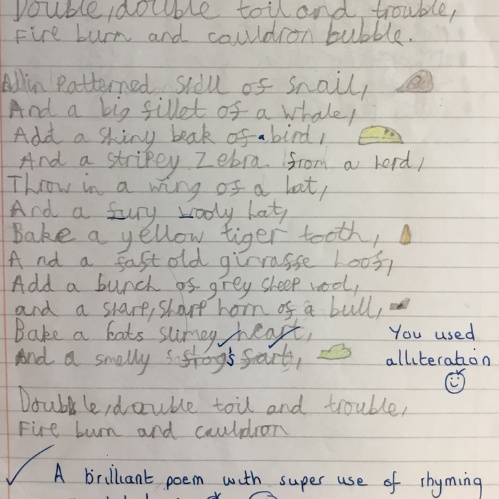 Double, double toil and trouble,
Fire burn and cauldron bubble.
Patterned of snail,
And a big fillet of a whale,
Add a shiny beak of a bird,
And a stripey Zebra from a herd,
Throw in a wing of a bat,
And a fury wooly hat,
Bake a yellow tiger tooth,
And a fast old giraffe hoof,
Add a bunch of grey sheep wool,
and a sharp, sharp horn of a bull,
Bake a bats slimey heart,
And a smelly frog's fart,
You used
alliteration
Double, double toil and trouble,
Fire burn and cauldron
A brilliant poem with super use of rhyming